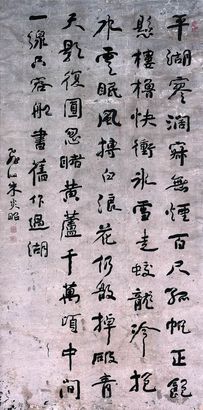 平湖寥闊寂無煙百尺孤帆正飽
懸樓櫓快衝氷雪走蛟龍冷抱
水雲眠風摶白浪花仍散棹破青
天影復圓忽睹黃蘆千萬頃中間
一線只容船書舊作過湖
朱炎昭